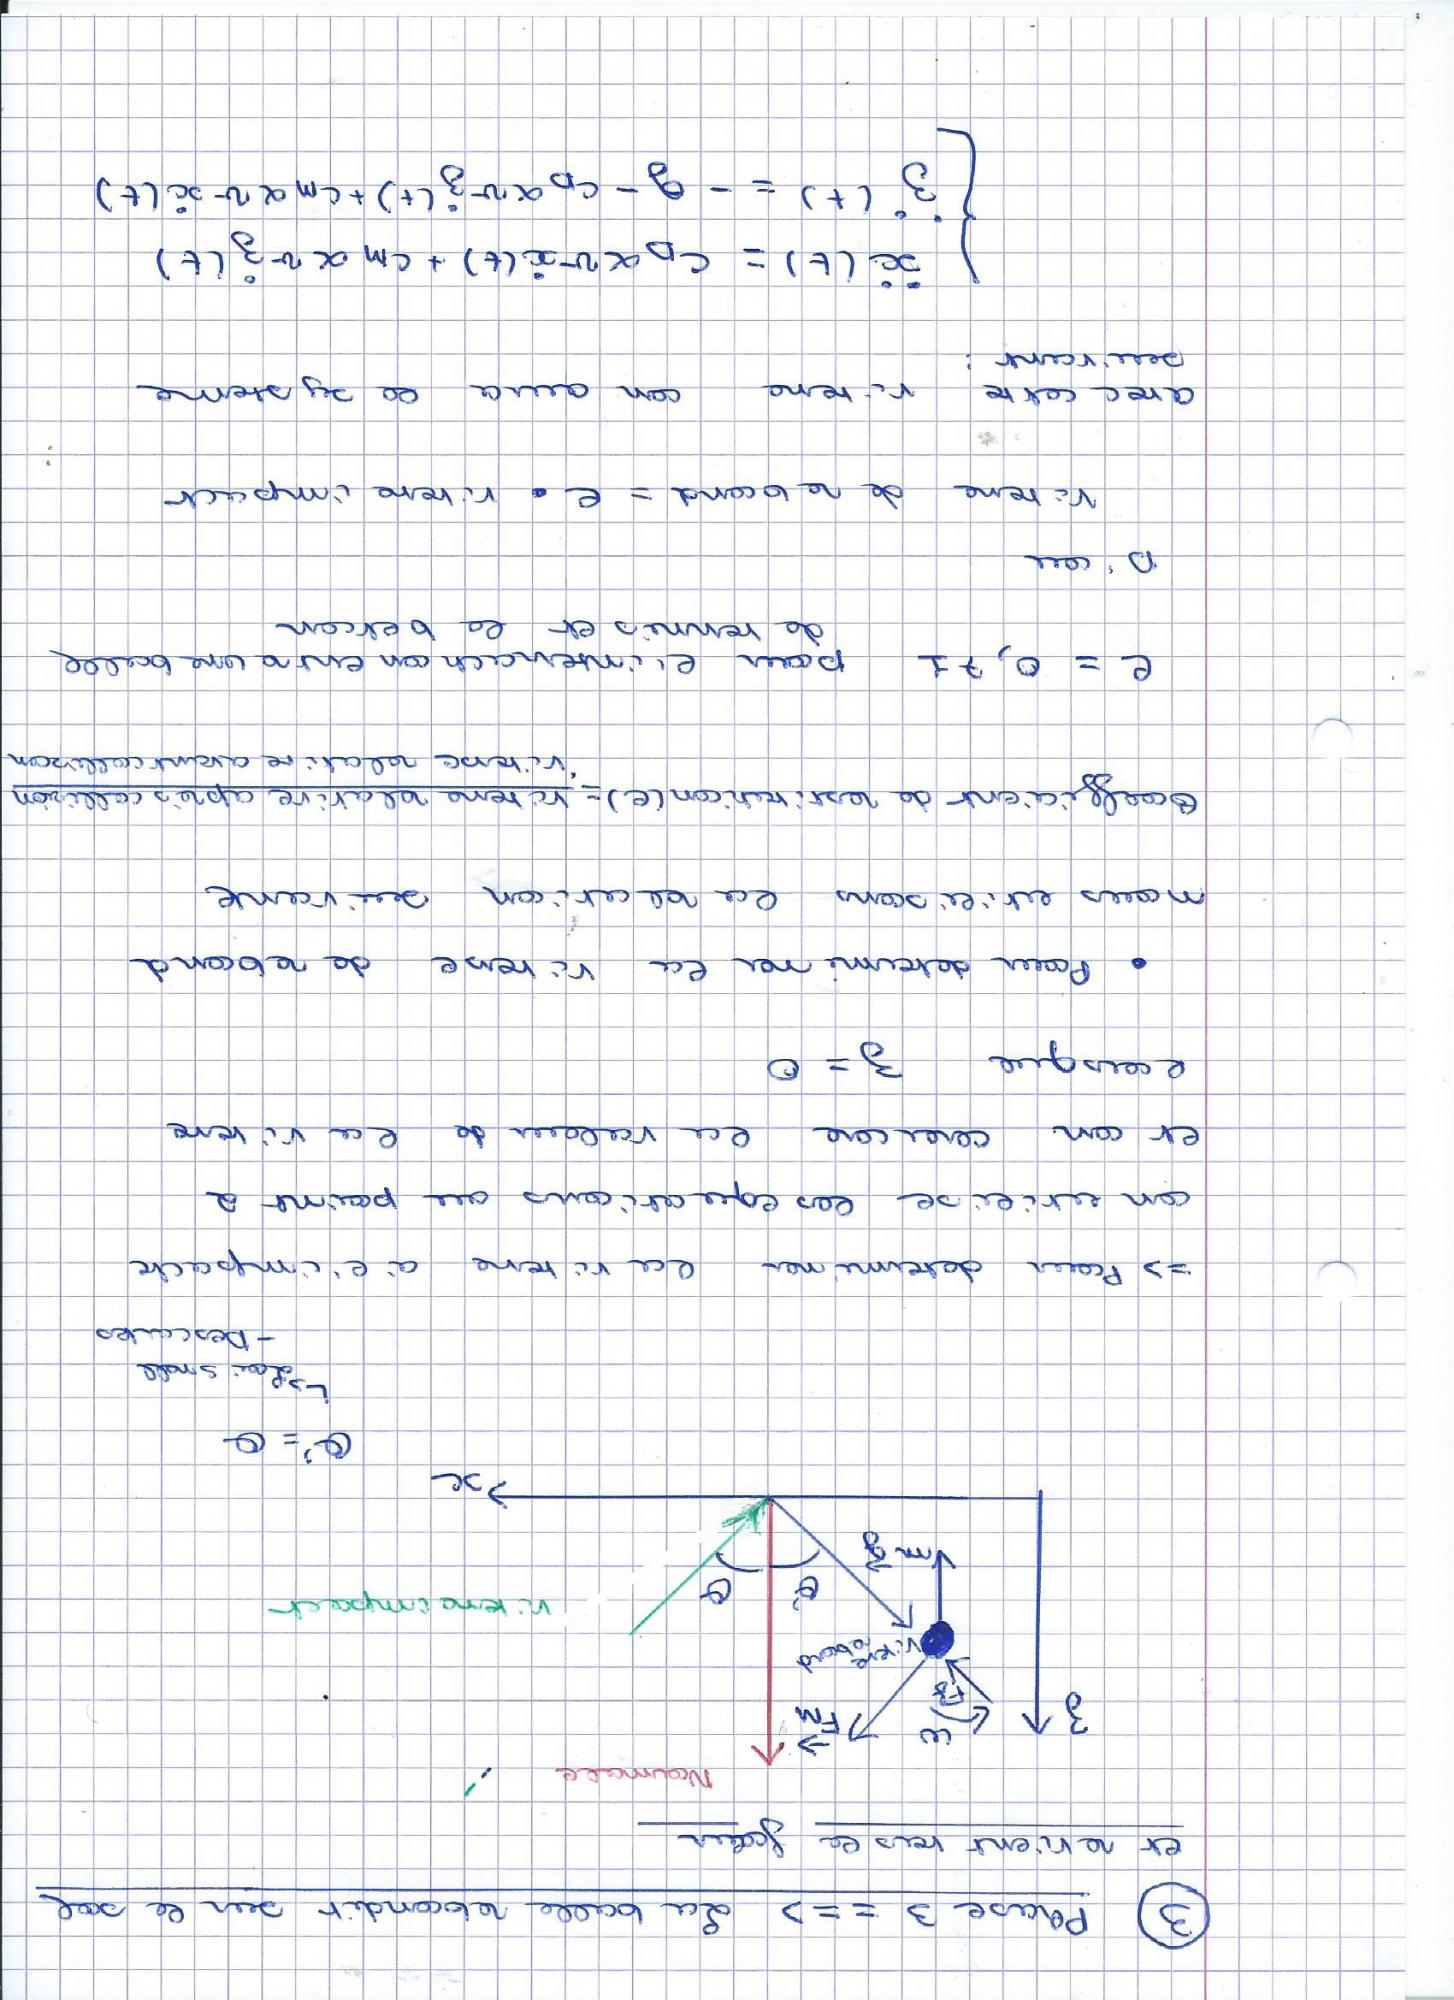 ③ Phase 3 ==> La balle rebondit sur le sol
et revient vers le joueur
Normale
z
ω
F⃗M
vitesse rebond
mg⃗
θ'
θ
vitesse impact
x
θ' = θ
↳ Loi Snell
- Descartes
=> Pour determiner la vitesse a l'impacte
on utilise les equations au point 2
et on cherche la valeur de la vitesse
lorsque z = 0
• Pour determiner la vitesse de rebond
nous utilisons la relation suivante
Coefficient de restitution (e) = vitesse relative après collision
vitesse relative avant collision
e = 0,71 pour l'interaction entre une balle
de tennis et le beton
D'ou
vitesse de rebond = e • vitesse impact
avec cette vitesse on aura le systeme
suivant :
ẍ(t) = CD α v ẋ(t) + Cm α v ż(t)
z̈(t) = - g - CD α v ż(t) + Cm α v ẋ(t)